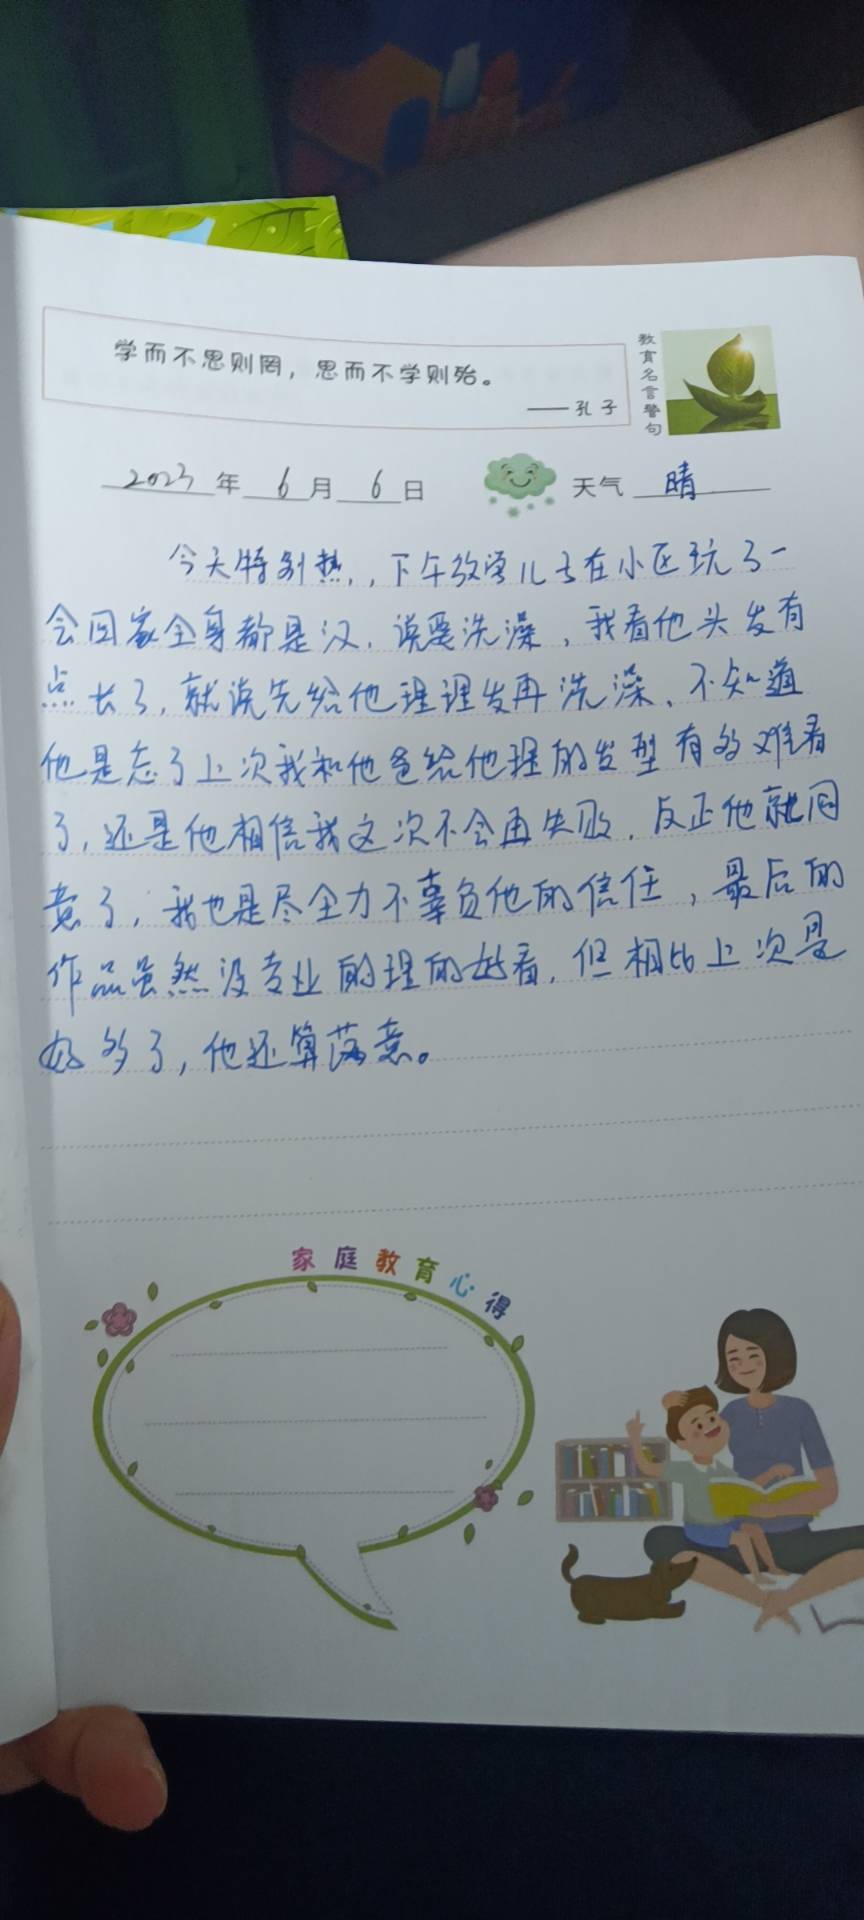 学而不思则罔，思而不学则殆。
——孔子
教育名言警句
2023年6月6日
天气 晴
今天特别热，下午放学儿子在小区玩了一
会回家全身都是汉，说要洗澡，我看他头发有
点长了，就说先给他理理发再洗澡、不知道
他是忘了上次我和他爸给他理的发型有多难看
了，还是他相信我这次不会再失败，反正他就同
意了，我也是尽全力不辜负他的信任，最后的
作品虽然没专业的理的好看，但相比上次是
好多了，他还算满意。
家庭教育心得